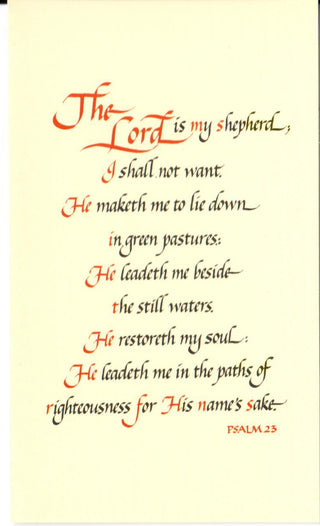 The
Lord is my shepherd;
I shall not want.
He maketh me to lie down
in green pastures:
He leadeth me beside
the still waters.
He restoreth my soul:
He leadeth me in the paths of
righteousness for His name's sake.
PSALM.23